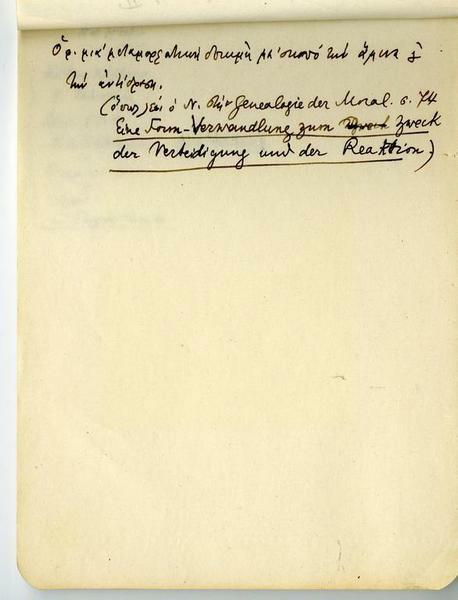 Ὅρ. μιὰ μεταμορφωτικὴ στιγμὴ μὲ σκοπὸ τὴν ἄμυνα &
τὴν ἀντίδραση.
(ὅπως λέει ὁ Ν. στὴν Genealogie der Moral. σ. 74
Eine Form-Verwandlung zum Zweck
der Verteidigung und der Reaktion)